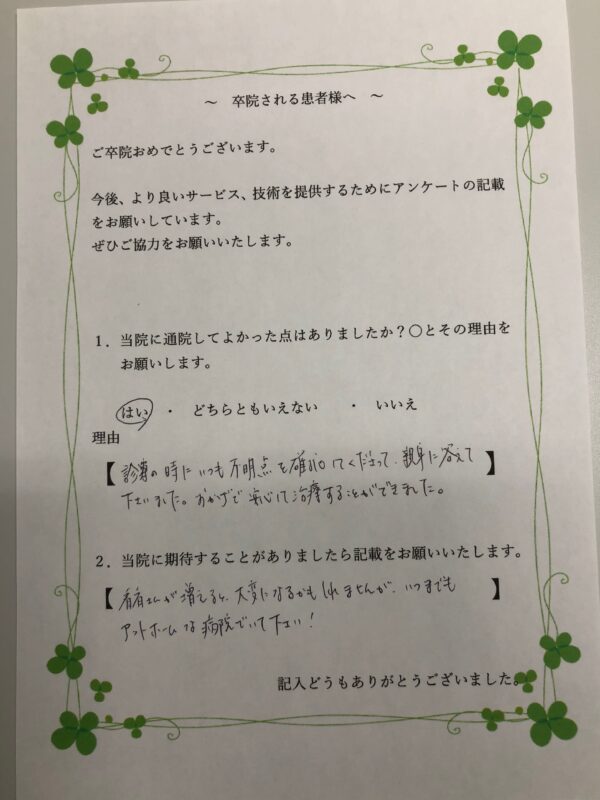 ～ 卒院される患者様へ ～
ご卒院おめでとうございます。
今後、より良いサービス、技術を提供するためにアンケートの記載
をお願いしています。
ぜひご協力をお願いいたします。
1．当院に通院してよかった点はありましたか？〇とその理由を
お願いします。
はい ・ どちらともいえない ・ いいえ
理由
【診察の時にいつも不明点を確認してくださって、親身に答えて】
下さいました。おかげで安心して治療することができました。
2．当院に期待することがありましたら記載をお願いいたします。
【患者さんが増えると、大変になるかもしれませんが、いつまでも】
アットホームな病院でいて下さい！
記入どうもありがとうございました。